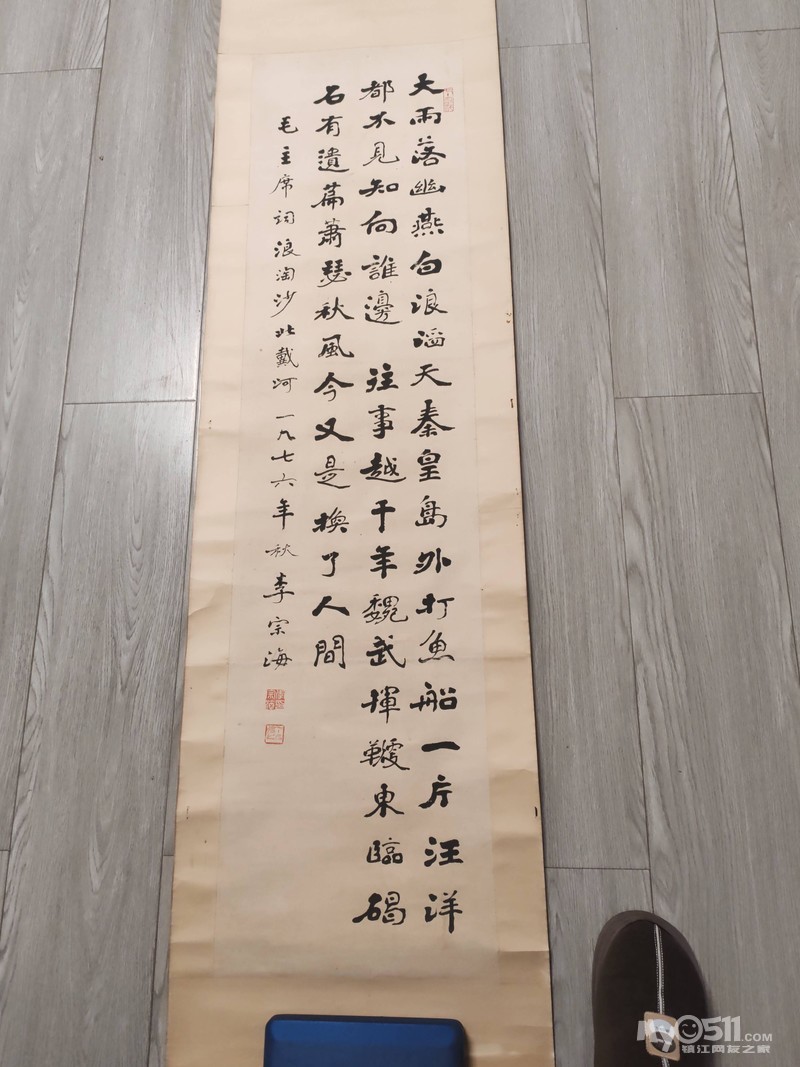 大雨落幽燕白浪滔天秦皇島外打魚船一片汪洋
都不見知向誰邊 往事越千年魏武揮鞭東臨碣
石有遺篇蕭瑟秋風今又是換了人間
毛主席词浪淘沙北戴河一九七六年秋李宗海
511.COM
镇江网友之家